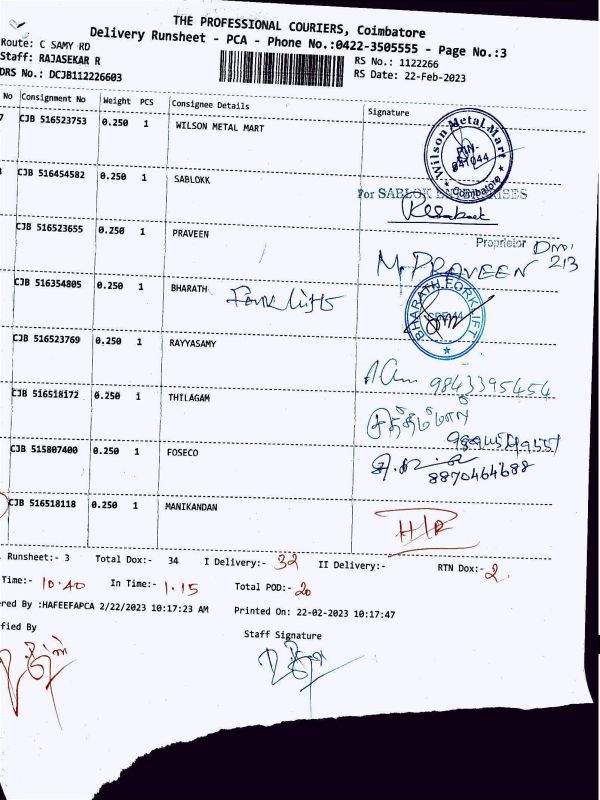 THE PROFESSIONAL COURIERS, Coimbatore
Delivery Runsheet - PCA - Phone No.:0422-3505555 - Page No.:3
Route: C SAMY RD
RS No.: 1122266
Staff: RAJASEKAR R
RS Date: 22-Feb-2023
DRS No.: DCJB112226603
No Consignment No Weight PCS Consignee Details Signature
7 CJB 516523753 0.250 1 WILSON METAL MART
Wilson Metal Mart
PIN-
641044
Coimbatore
CJB 516454582 0.250 1 SABLOKK
For SABLOK ENTERPRISES
Proprietor
CJB 516523655 0.250 1 PRAVEEN
M. PRAVEEN
213
CJB 516354805 0.250 1 BHARATH
Fork lifts
BHARATH FORKLIFT
CJB 516523769 0.250 1 RAYYASAMY
9843395454
CJB 516518172 0.250 1 THILAGAM
CJB 515807400 0.250 1 FOSECO
8870464688
CJB 516518118 0.250 1 MANIKANDAN
Runsheet:- 3 Total Dox:- 34 I Delivery:- 32 II Delivery:- RTN Dox:- 2
Time:- 10.40 In Time:- 1.15 Total POD:- 20
ered By :HAFEEFAPCA 2/22/2023 10:17:23 AM Printed On: 22-02-2023 10:17:47
ified By
Staff Signature